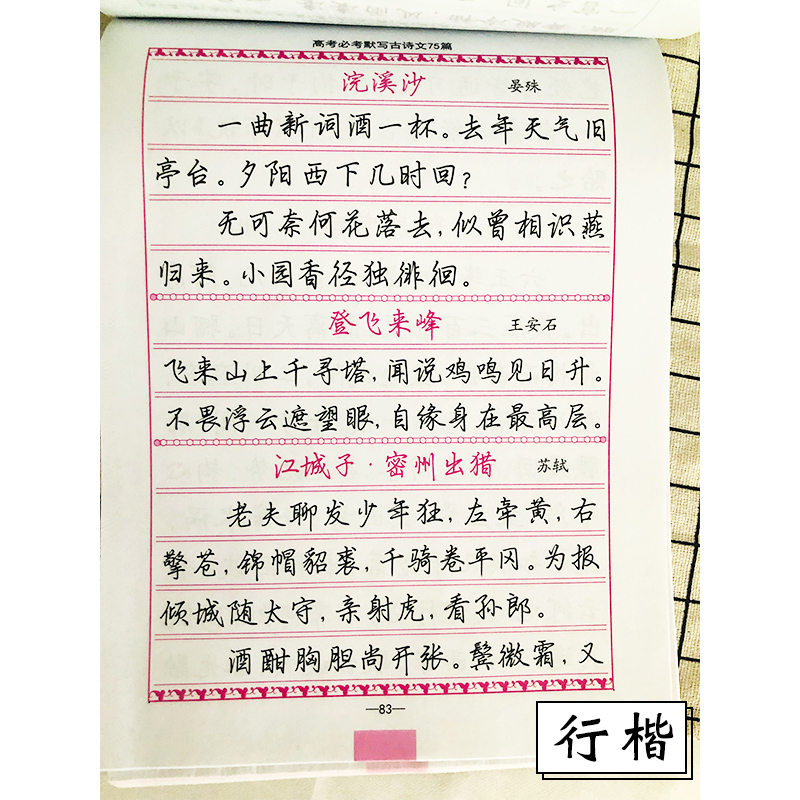 高考必考默写古诗文75篇
浣溪沙 晏殊
一曲新词酒一杯。去年天气旧
亭台。夕阳西下几时回?
无可奈何花落去,似曾相识燕
归来。小园香径独徘徊。
登飞来峰 王安石
飞来山上千寻塔,闻说鸡鸣见日升。
不畏浮云遮望眼,自缘身在最高层。
江城子·密州出猎 苏轼
老夫聊发少年狂,左牵黄,右
擎苍,锦帽貂裘,千骑卷平冈。为报
倾城随太守,亲射虎,看孙郎。
酒酣胸胆尚开张。鬓微霜,又
—83—
行楷